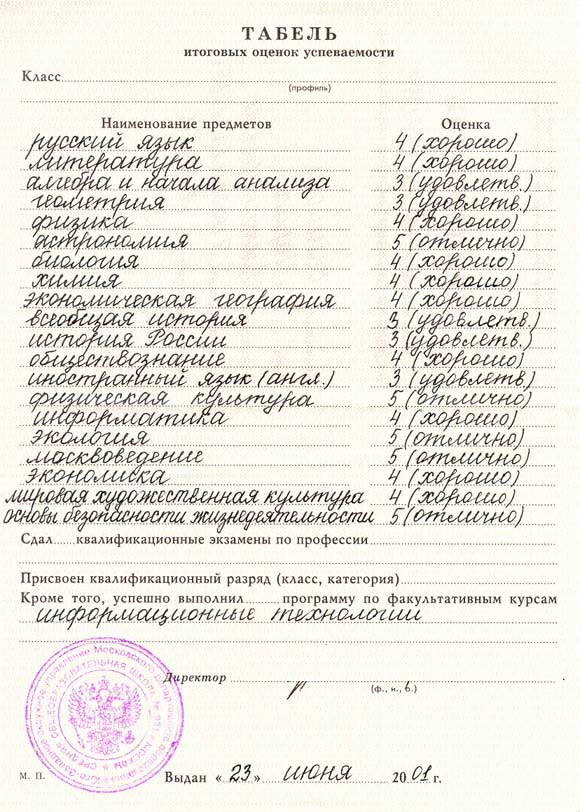 ТАБЕЛЬ
итоговых оценок успеваемости
Класс
(профиль)
Наименование предметов Оценка
русский язык 4 (хорошо)
литература 4 (хорошо)
алгебра и начала анализа 3 (удовлетв.)
геометрия 3 (удовлетв.)
физика 4 (хорошо)
астрономия 5 (отлично)
биология 4 (хорошо)
химия 4 (хорошо)
экономическая география 4 (хорошо)
всеобщая история 3 (удовлетв.)
история России 3 (удовлетв.)
обществознание 4 (хорошо)
иностранный язык (англ.) 3 (удовлетв.)
физическая культура 5 (отлично)
информатика 4 (хорошо)
экология 5 (отлично)
масквоведение 5 (отлично)
экономика 4 (хорошо)
мировая художественная культура 4 (хорошо)
основы безопасности жизнедеятельности 5 (отлично)
Сдал квалификационные экзамены по профессии
Присвоен квалификационный разряд (класс, категория)
Кроме того, успешно выполнил программу по факультативным курсам
информационные технологии
Директор
(ф., и., о.)
М. П. Выдан «23» июня 2001 г.